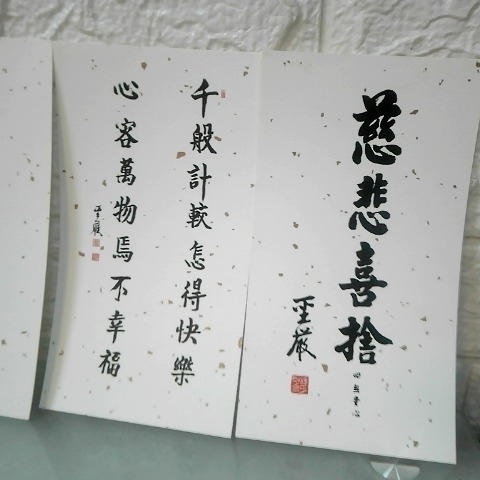 慈悲喜捨
四無量心
聖嚴
千般計較怎得快樂
心容萬物焉不幸福
聖嚴